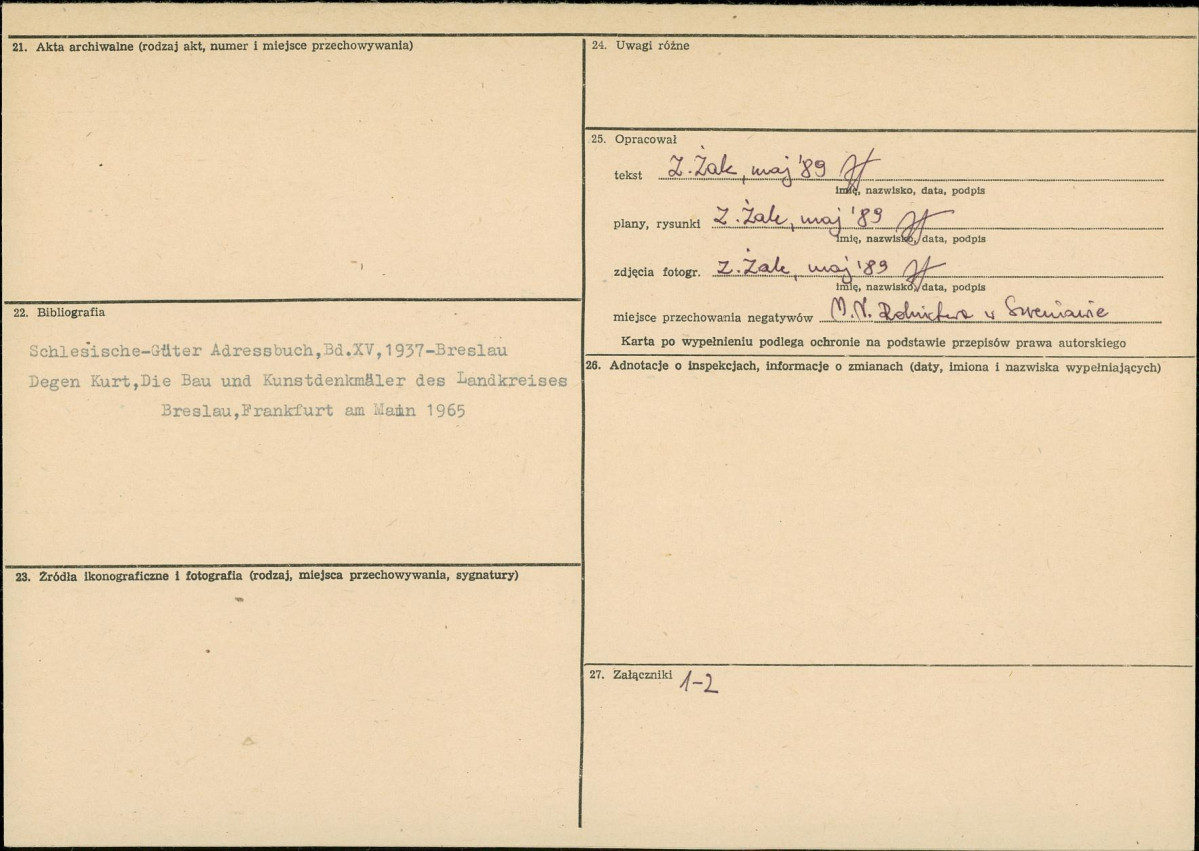 21. Akta archiwalne (rodzaj akt, numer i miejsce przechowywania)
22. Bibliografia
Schlesische-Güter Adressbuch,Bd.XV,1937-Breslau
Degen Kurt,Die Bau und Kunstdenkmäler des Landkreises
Breslau,Frankfurt am Main 1965
23. Źródła ikonograficzne i fotografia (rodzaj, miejsca przechowywania, sygnatury)
24. Uwagi różne
25. Opracował
tekst Z. Żak, maj '89
imię, nazwisko, data, podpis
plany, rysunki Z. Żak, maj '89
imię, nazwisko, data, podpis
zdjęcia fotogr. Z. Żak, maj '89
imię, nazwisko, data, podpis
miejsce przechowania negatywów M.N. Rolnictwa w Szreniawie
Karta po wypełnieniu podlega ochronie na podstawie przepisów prawa autorskiego
26. Adnotacje o inspekcjach, informacje o zmianach (daty, imiona i nazwiska wypełniających)
27. Załączniki 1-2